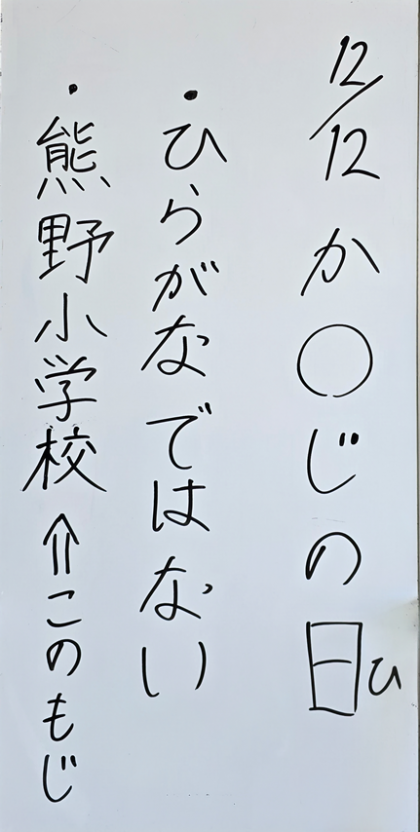 12/12か○じの日ひ
・ひらがなではない
・熊野小学校⇐このもじ